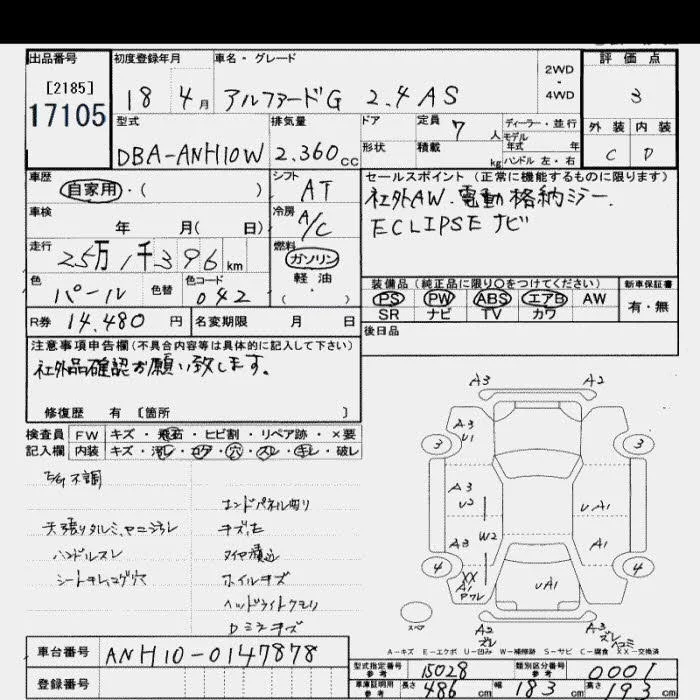 出品番号 初度登録年月 車名・グレード 2WD・4WD 評価点
[2185]
17105
18 4月 アルファードG 2.4 AS 3
型式 排気量 ドア 定員 7 人 ディーラー・並行
モデル年式 年
外装 内装
DBA-ANH10W 2.360cc 形状 積載 kg ハンドル 左・右 C D
車歴 シフト セールスポイント (正常に機能するものに限ります)
自家用・( ) AT 社外AW.電動格納ミラー.
車検 冷房 ECLIPSE ナビ
年 月( 日) A/C
走行 燃料
25万1千396km ガソリン
色 色替 色コード 軽油
パール 042 ( ・ )
装備品 (純正品に限り○をつけてください) 新車保証書
PS PW ABS エアB AW 有・無
SR ナビ TV カワ
R券 14,480円 名変期限 月 日 後日品
注意事項申告欄(不具合内容等は具体的に記入して下さい)
社外品確認お願い致します。
修復歴 有 [箇所 ]
検査員 FW キズ・飛石・ヒビ割・リペア跡・×要
記入欄 内装 キズ・汚レ・コゲ・穴・スレ・キレ・破レ
不調
エンドパネル曲リ
天張リタルミ、ヤニ汚レ
ハンドルスレ
シートキレ、コゲ穴
タイヤ積込
ホイルキズ
ヘッドライトクモリ
A3 A2
A3
U1
3 3
A3
U2
UA1
W2
A3 A1
4 4
XX
A1
UA1
スペア
A2
ズレ
A3
ズレ
ヘコミ
A-キズ E-エクボ U-凹み W-補修跡 S-サビ C-腐食 XX-交換済
車台番号 ANH10-0147878
型式指定番号 参考 15028 類別区分番号 参考 0001
登録番号
車庫証明用 参考 長さ 486cm 幅 183cm 高さ 193cm